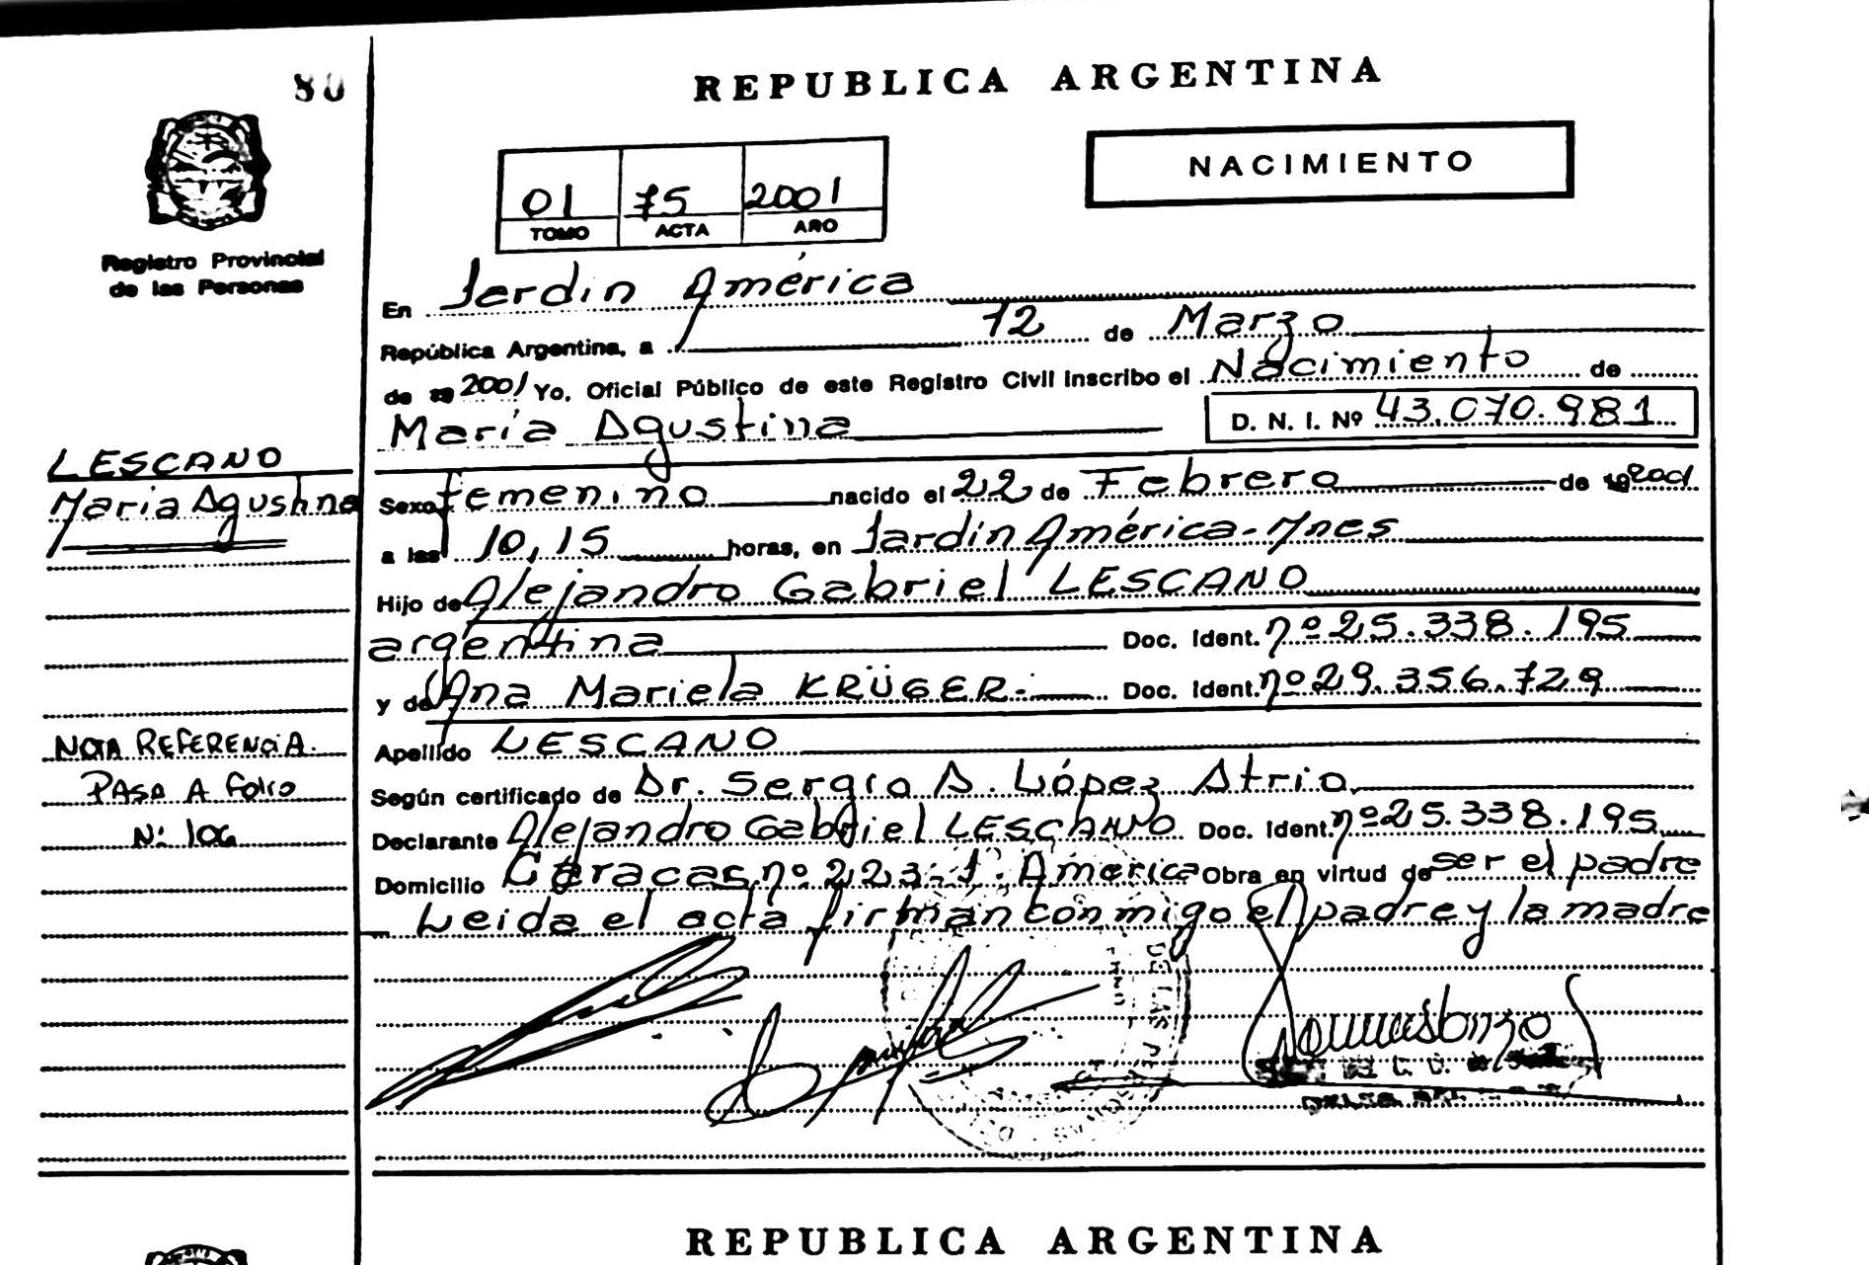 80
REPUBLICA ARGENTINA
NACIMIENTO
01 75 2001
TOMO ACTA AÑO
Registro Provincial
de las Personas
En Jardin América
República Argentina, a 12 de Marzo
de 19 2001 Yo, Oficial Público de este Registro Civil inscribo el Nacimiento de
María Agustina D. N. I. Nº 43.070.981
LESCANO
Maria Agustina
Sexo femenino nacido el 22 de Febrero de 19 2001
a las 10,15 horas, en Jardin América-Mnes
Hijo de Alejandro Gabriel LESCANO
argentina Doc. Ident. nº 25.338.195
y de Ana Mariela KRÜGER.- Doc. Ident. nº 29.356.729
Apellido LESCANO
Según certificado de Dr. Sergio A. López Atrio
Declarante Alejandro Gabriel LESCANO Doc. Ident. nº 25.338.195
Domicilio Caracas nº 223-J. America Obra en virtud de ser el padre
Leida el acta firman conmigo el padre y la madre
NOTA REFERENCIA.
PASA A Folio
Nº 106
DE LAS
REPUBLICA ARGENTINA